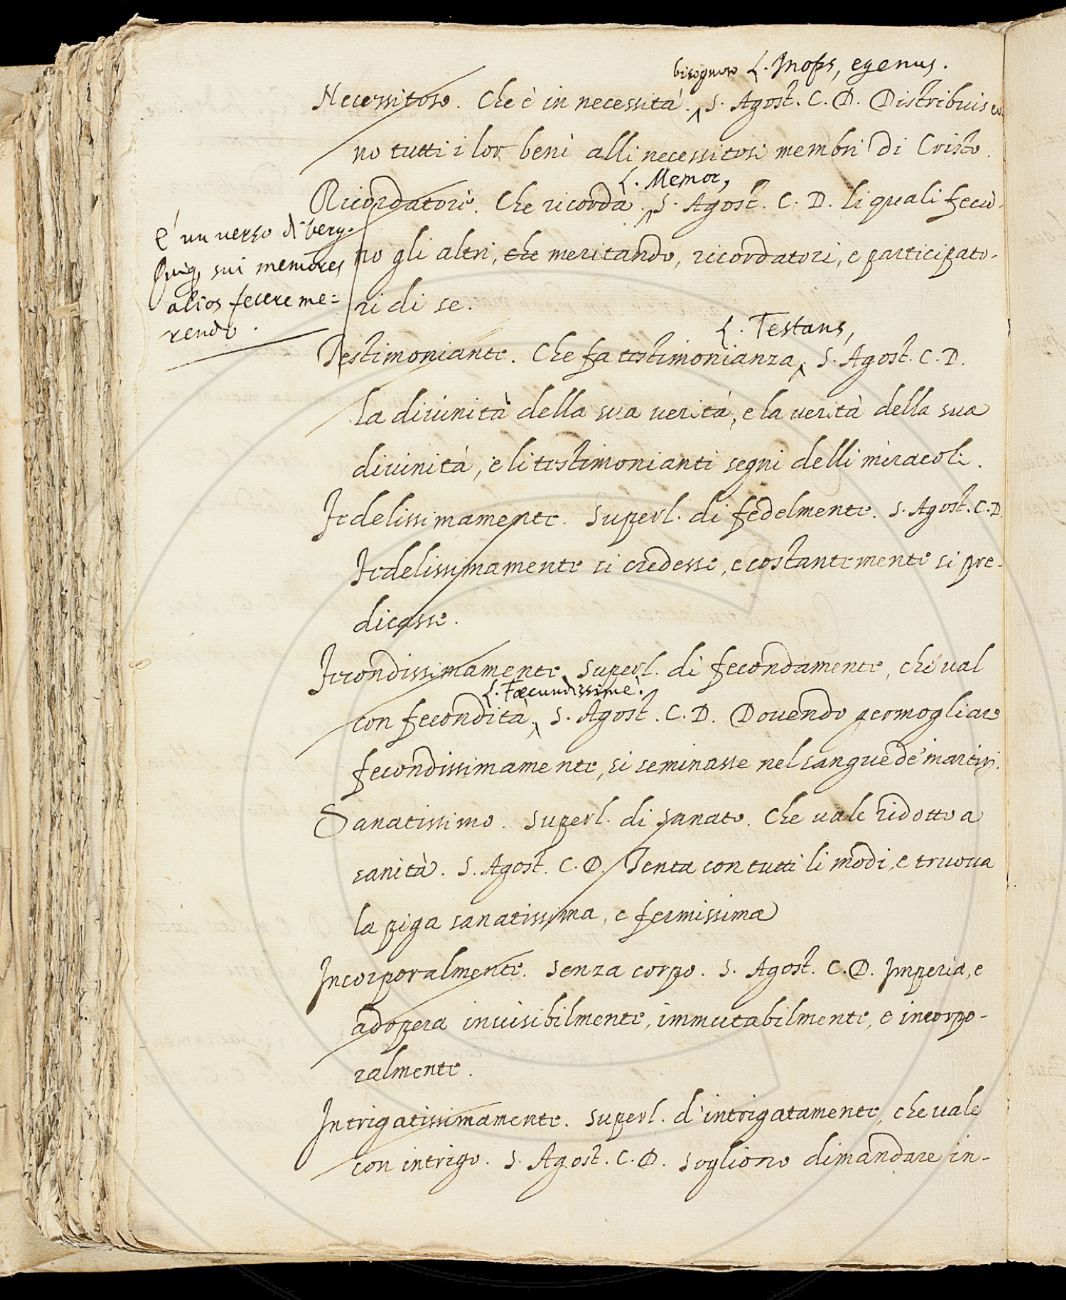 bisognoso L. Inops, egenus.
Necessitoso. Che è in necessità. S. Agost. C. D. Distribuisco-
no tutti i lor beni alli necessitosi membri di Cristo.
L. Memor,
Ricordatore. Che ricorda. S. Agost. C. D. li quali fecio-
no gli altri, che meritando, ricordatori, e participato-
ri di se.
È un verso di Verg.
sui memores
alios fecere me=
rendo.
L. Testans,
Testimoniante. Che fa testimonianza. S. Agost. C. D.
la divinità della sua verità, e la verità della sua
divinità, e li testimonianti segni delli miracoli.
Fedelissimamente. Superl. di fedelmente. S. Agost. C. D.
Fedelissimamente si credesse, e costantemente si pre-
dicasse.
Fecondissimamente. Superl. di fecondamente, che val
L. Fœcundissime.
con fecondità. S. Agost. C. D. Dovendo germogliare
fecondissimamente, si seminasse nel sangue de' martiri.
Sanatissimo. Superl. di Sanato. Che vale ridotto a
sanità. S. Agost. C. D. Tenta con tutti li modi, e truova
la piga sanatissima, e fermissima
Incorporalmente. Senza corpo. S. Agost. C. D. Imperia, e
adopera invisibilmente, immutabilmente, e incorpo-
ralmente.
Intrigatissimamente. Superl. d'intrigatamente, che vale
con intrigo. S. Agost. C. D. Sogliono dimandare in-